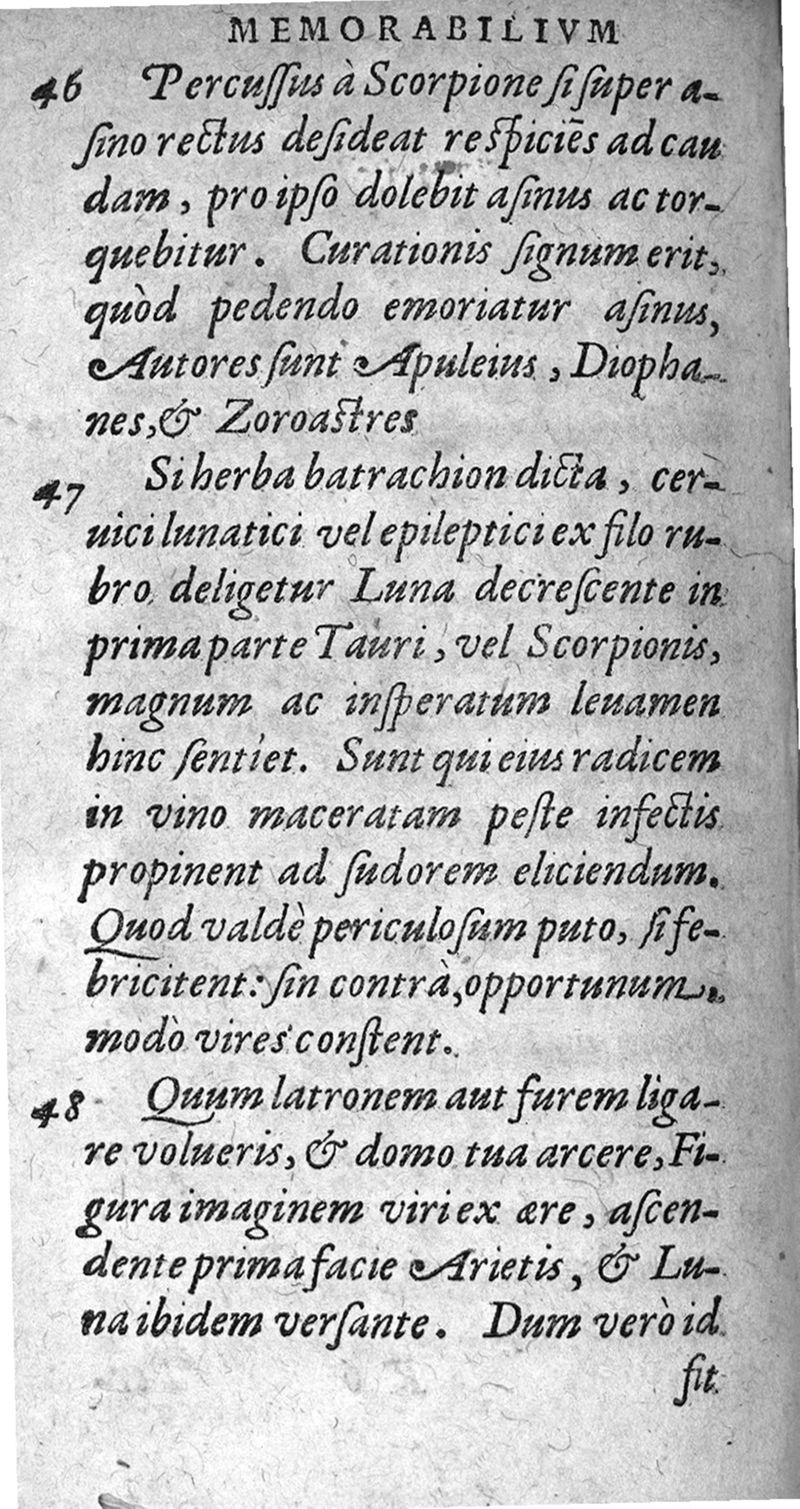 MEMORABILIVM
46 Percuſſus à Scorpione ſi ſuper a-
ſino rectus deſideat reſpiciẽs ad cau
dam, pro ipſo dolebit aſinus ac tor-
quebitur. Curationis ſignum erit,
quòd pedendo emoriatur aſinus,
Autores ſunt Apuleius, Diopha-
nes, & Zoroaſtres
47 Si herba batrachion dicta, cer-
uici lunatici vel epileptici ex filo ru-
bro deligetur Luna decreſcente in
prima parte Tauri, vel Scorpionis,
magnum ac inſperatum leuamen
hinc ſentiet. Sunt qui eius radicem
in vino maceratam peſte infectis
propinent ad ſudorem eliciendum.
Quod valdè periculoſum puto, ſi fe-
bricitent: ſin contrà, opportunum,
modò vires conſtent.
48 Quum latronem aut furem liga-
re volueris, & domo tua arcere, Fi-
gura imaginem viri ex ære, aſcen-
dente prima facie Arietis, & Lu-
na ibidem verſante. Dum verò id
fit